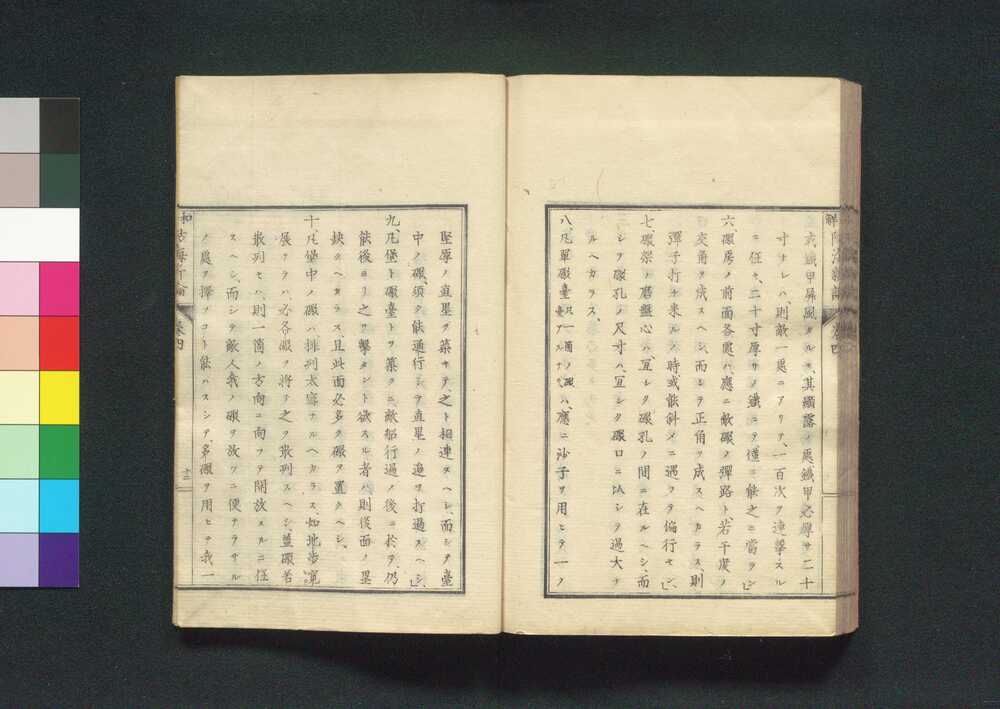 或鐵甲屏風タルモ、其顯露ノ處鐵甲必厚サ二十
寸ナレハ、則敵一處ニアリテ、一百次フ連擊スル
ニ任セ、二十寸厚サノ鐵ニテ僅ニ能之ニ當ラン
六、礟房ノ前面各處ハ、應ニ敵礟ノ彈路ト、若干度ノ
交角ヲ成スヘシ、而シテ正角ヲ成スヘカラス、則
彈子打チ來ルノ時或能斜メニ遇フテ偏行セン、
七、礟架ノ磨盤心ハ、宜シク礟孔ノ間ニ在ルヘシ、而
シテ礟孔ノ尺寸ハ、宜シク礟口ニ以シテ過大ナ
ルヘカラス、
八、凡單礟臺只一箇ノ礟臺アルナリハ、應ニ沙子ヲ用ヒテ一ノ
堅厚ノ直壘ヲ築キテ、之ト相連スヘシ、而シテ臺
中ノ礟、須ク能通行シテ直壘ノ邊ヲ打過スヘシ、
九、凡堡ト礟臺トヲ築クニ、敵船行過ノ後ニ於テ、仍
能後ヨリ之ヲ擊タント欲スル者ハ、則後面ノ壘
缺クヘカラス且此面必多ク礟ヲ置クヘシ、
十、凡堡中ノ礟ハ排列太密ナルヘカラス、如地步寬
展ナラハ、必各礟ヲ將テ之ヲ散列スヘシ、蓋礟若
散列セハ、則一箇ノ方向ニ向フテ開放スルニ任
スヘシ、而シテ敵人我ノ礟ヲ放ツニ便ナラサル
ノ處ヲ擇フコト能ハスシテ、多礟ヲ用ヒテ我一
卷四
十三